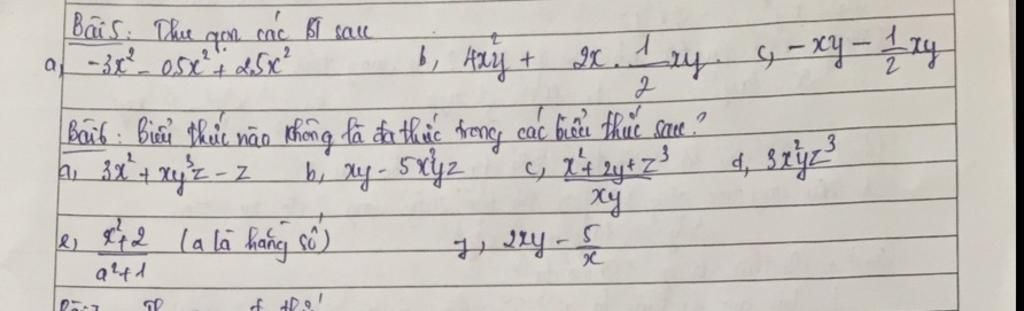 Bài 5: Thu gọn các BT sau
a, -3x² - 0,5x² + 2,5x² b, 4x²y + 2x . 1/2 xy . c, -xy - 1/2 xy
Bài 6: Biểu thức nào không là đa thức trong các biểu thức sau?
a, 3x² + xy³z - z b, xy - 5x²yz c, (x² + 2y + z³)/xy d, 3x²yz³
e, (x² + 2)/(a² + 1) (a là hằng số) f, 2xy - 5/x